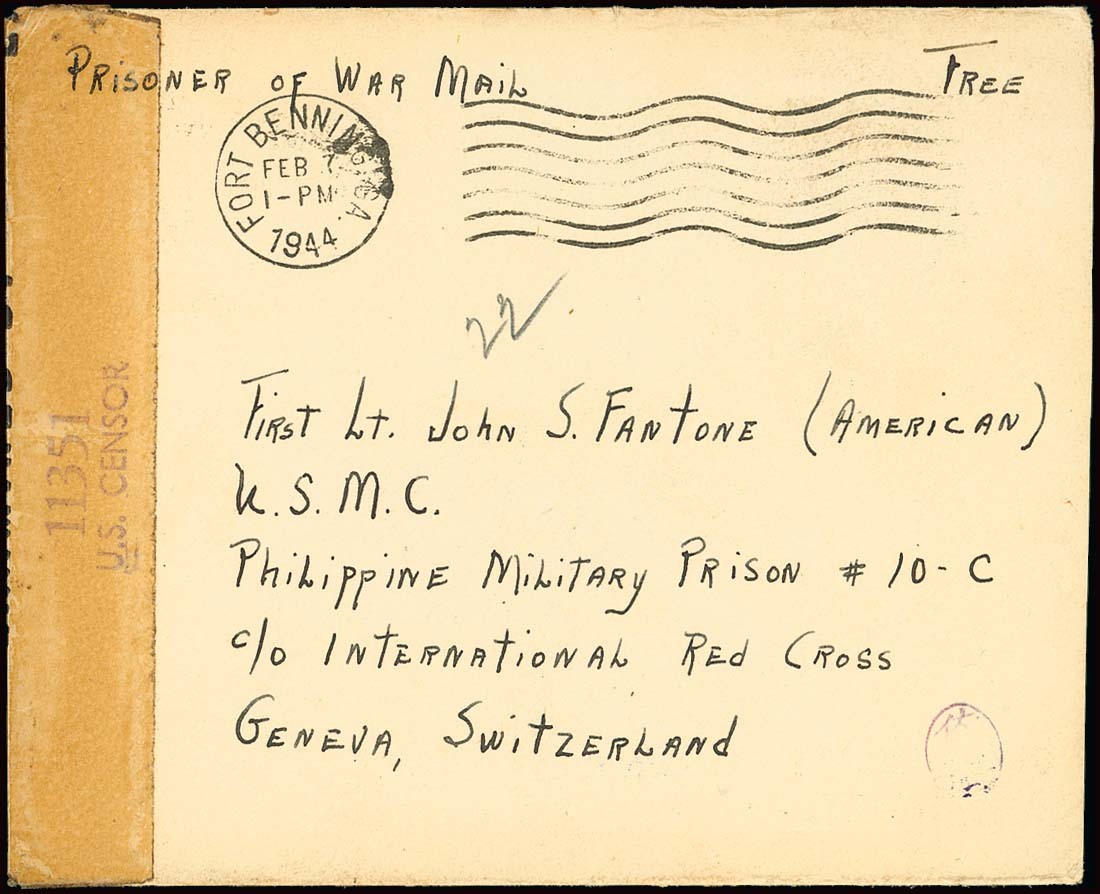 Prisoner of War Mail
Free
FORT BENNING, GA.
FEB 7
1-PM
1944
22
First Lt. John S. Fantone (American)
U.S.M.C.
Philippine Military Prison # 10-C
c/o International Red Cross
Geneva, Switzerland
11351
U.S. CENSOR